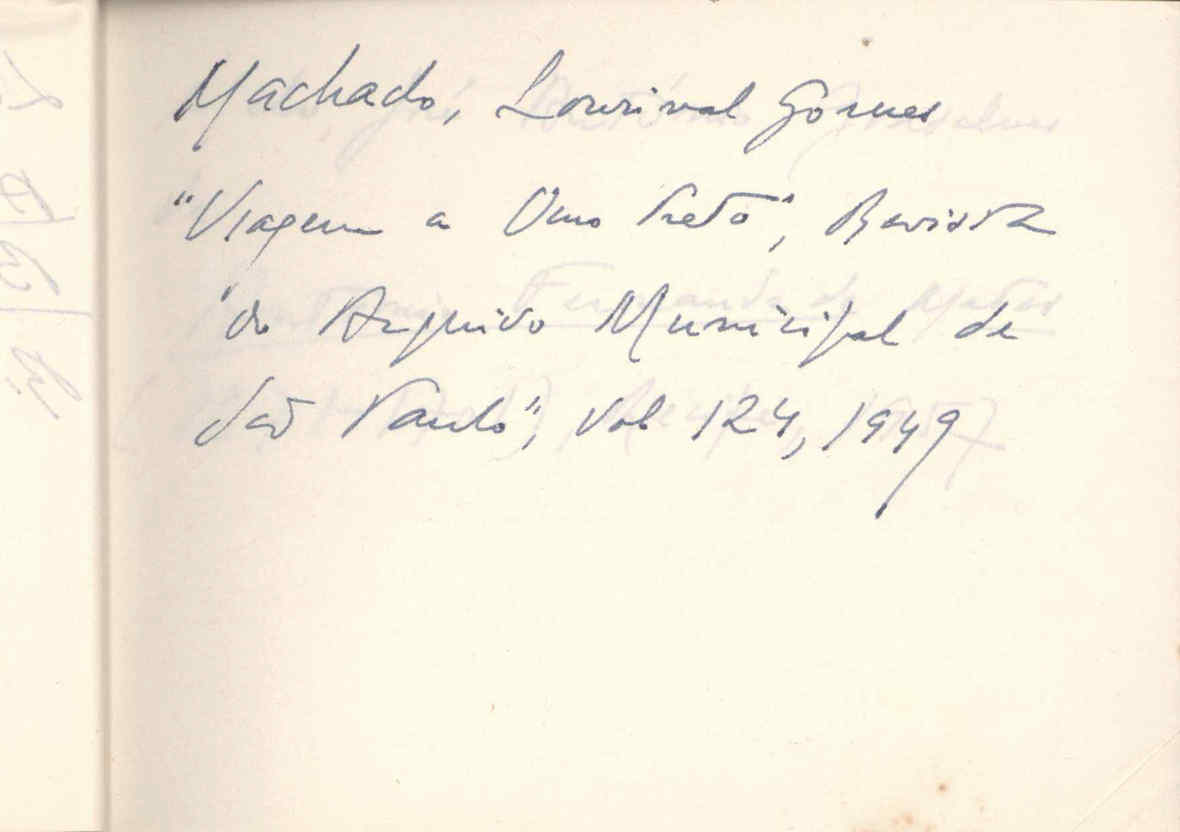 Machado, Lourival Gomes
"Viagem a Ouro Preto", Revista
do Arquivo Municipal de
São Paulo", Vol 124, 1949